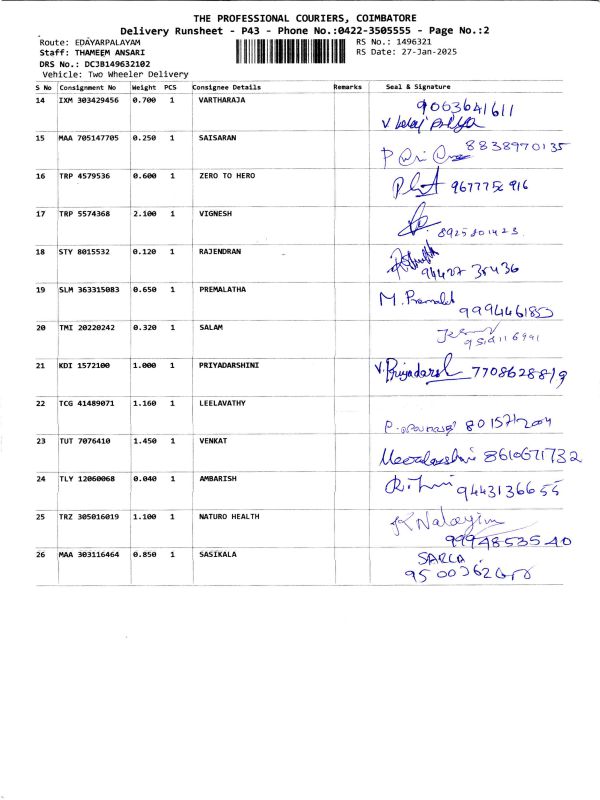 THE PROFESSIONAL COURIERS, COIMBATORE
Delivery Runsheet - P43 - Phone No.:0422-3505555 - Page No.:2
Route: EDAYARPALAYAM RS No.: 1496321
Staff: THAMEEM ANSARI RS Date: 27-Jan-2025
DRS No.: DCJB149632102
Vehicle: Two Wheeler Delivery
S No Consignment No Weight PCS Consignee Details Remarks Seal & Signature
14 IXM 303429456 0.700 1 VARTHARAJA 9063641611
15 MAA 705147705 0.250 1 SAISARAN 8838970135
16 TRP 4579536 0.600 1 ZERO TO HERO
17 TRP 5574368 2.100 1 VIGNESH 8925801423
18 STY 8015532 0.120 1 RAJENDRAN 94427 35436
19 SLM 363315083 0.650 1 PREMALATHA M. Premalat
20 TMI 20220242 0.320 1 SALAM
21 KDI 1572100 1.000 1 PRIYADARSHINI V. Priyadarsh 7708628819
22 TCG 41489071 1.160 1 LEELAVATHY
23 TUT 7076410 1.450 1 VENKAT 8610671732
24 TLY 12060068 0.040 1 AMBARISH 9443136655
25 TRZ 305016019 1.100 1 NATURO HEALTH K Nalayini
9994853540
26 MAA 303116464 0.850 1 SASIKALA